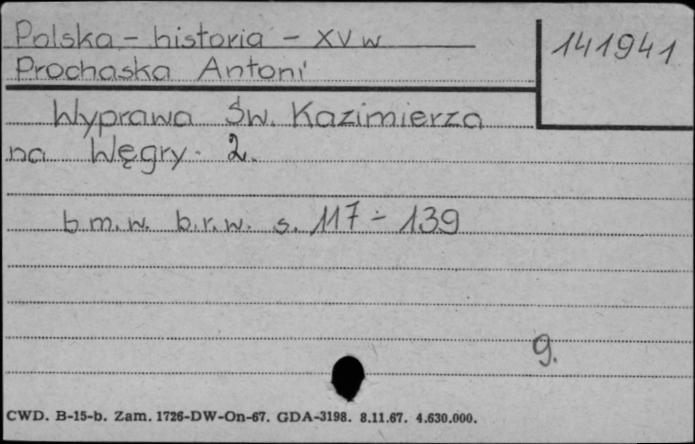 Polska - historia - XV w
141941
Prochaska Antoni
Wyprawa Św. Kazimierza
na Węgry. 2.
b.m.w. b.r.w. s. 117 ÷ 139
g.
CWD. B-15-b. Zam. 1726-DW-On-67. GDA-3198. 8.11.67. 4.630.000.